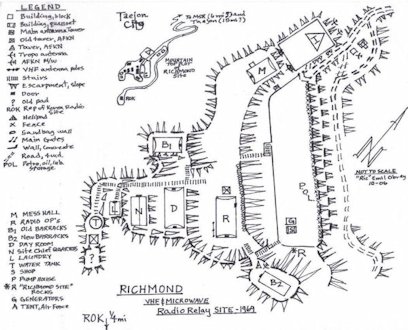 LEGEND
Building, block
Building, quonset
Main antenna tower
Old tower, AFKN
Tower, AFKN
Tropo antenna
AFKN M/W
VHF antenna poles
Stairs
Escarpment, slope
Door
Old pad
ROK Rep of Korea Radio Site
Helipad
Fence
Sandbag wall
Main Gates
Wall, concrete
Road, 4wd.
POL Petro, oil, lub. storage
Taejon City
MOUNTAIN TOP MAP
RICHMOND SITE
ROK
M
B1
L
N
D
R
T
?
P
S
POL
G
G
*R
A
B2
NOT TO SCALE
10-06
M MESS HALL
R RADIO OP'S
B1 OLD BARRACKS
B2 New BARRACKS
D DAY ROOM
N Site Chief QUARTERS
L LAUNDRY
T WATER TANK
S SHOP
P PUMP HOUSE
*R "RICHMOND SITE" ROCKS
G GENERATORS
A TENT, Air Force
RICHMOND
VHF & MICROWAVE
Radio Relay SITE - 1969
ROK 1/4 mi